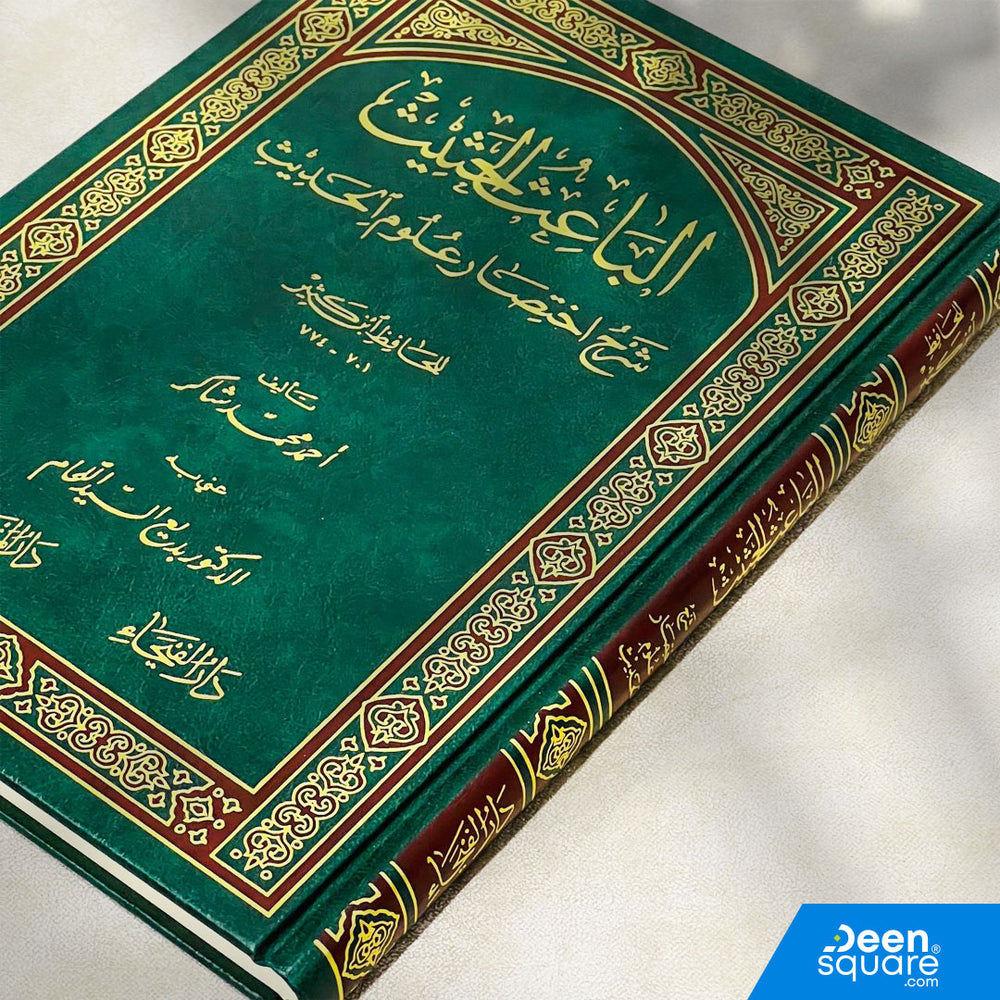 الباعث الحثيث
شَرْحُ اختِصَار عُلُوم الحَدِيثِ
للحَافِظ ابن كَثِيْر
٧٠١ - ٧٧٤
تأليف
أحمد محمّد شاكر
عني به
الدكتور بديع السيّد اللحّام
دَارُ الفَيْحَاءِ
للحافظ
الباعث الحثيث
دَارُ الفَيْحَاءِ
Deen®
square
.com